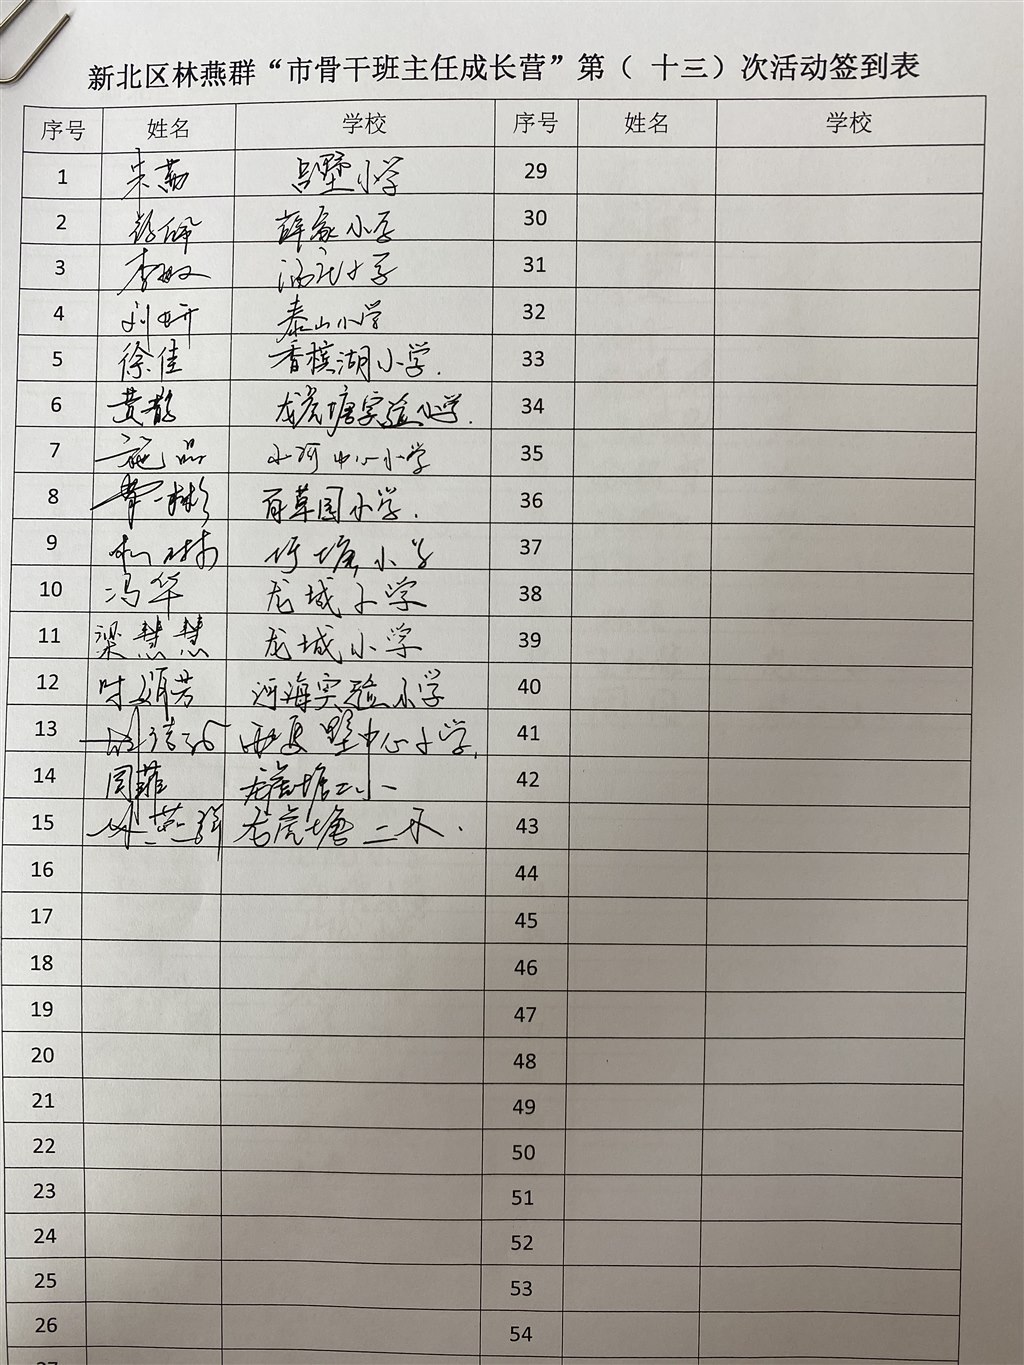 新北区林燕群“市骨干班主任成长营”第（ 十三）次活动签到表
序号 姓名 学校 序号 姓名 学校
1 朱 吕墅小学 29
2 薛家小学 30
3 李敏 小学 31
4 刘妍 泰山小学 32
5 徐佳 香槟湖小学. 33
6 黄静 龙虎塘实验小学. 34
7 施品 小河中心小学 35
8 百草园小学. 36
9 圩塘小学 37
10 冯华 龙城小学 38
11 梁慧慧 龙城小学 39
12 叶娟芳 河海实验小学 40
13 西夏墅中心小学. 41
14 周菲 龙虎塘二小 42
15 林燕群 龙虎塘二小. 43
16 44
17 45
18 46
19 47
20 48
21 49
22 50
23 51
24 52
25 53
26 54